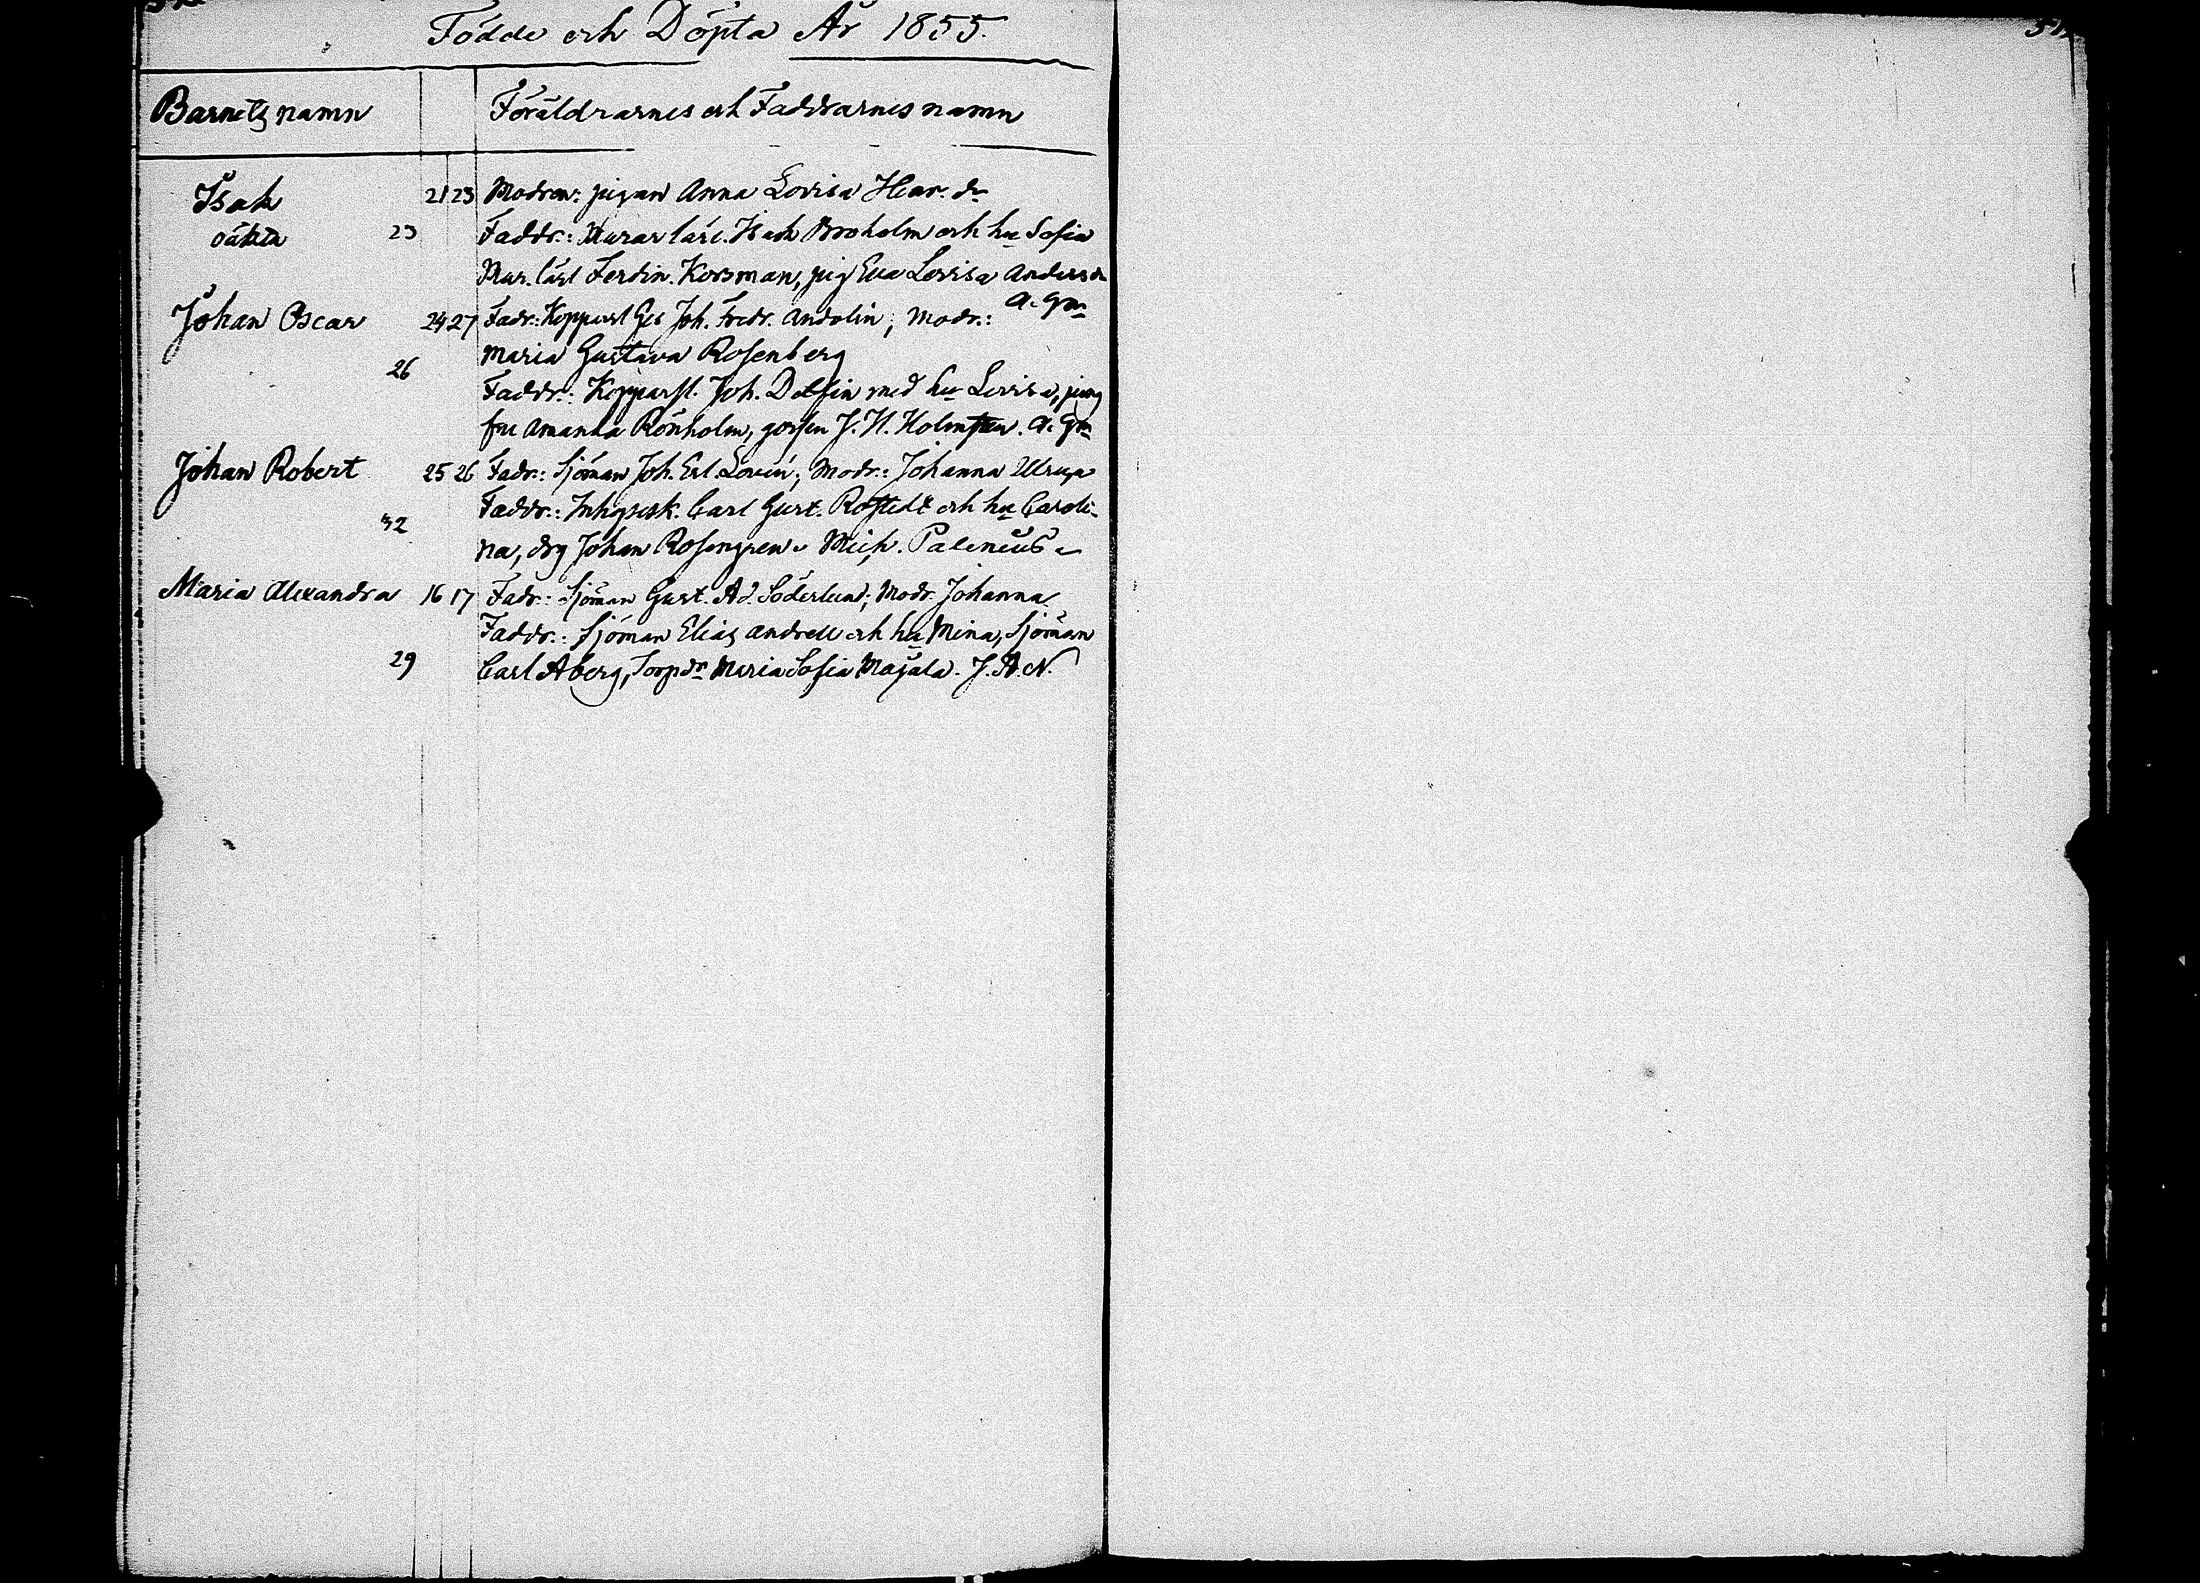 Födde och Döpta År 1855.
Barnets namn Föräldrarnes och Faddrarnes namn
Isak 21 23 Modren: pigan Anna Lovisa Henr. dr
oäkta 23 Faddr.: Murar lärl. Isak Broholm och hu Sofia
Mur. lärl Ferdin. Korsman, pig Eva Lovisa Andersdr
A. Gm
Johan Oscar 24 27 Fadr.: Kopparsl Ges Joh. Fredr. Andolin; Modr.:
Maria Gustava Rosenberg
26 Faddr.: Kopparsl. Joh. Delfin med hu Lovisa, jung
fru Amanda Rönholm, gossen J. H. Holmsten. A. Gm
Johan Robert 25 26 Fadr.: Sjöman Joh. Erl. Lovin; Modr.: Johanna Ulrica
32 Faddr.: Carl Gust. Rostedt och hu Caroli-
na, drg Johan Rosengren Mich. Palenius
Maria Alexandra 16 17 Fadr.: Sjöman Gust. Ad. Söderlund; Modr. Johanna
Faddr.: Sjöman Elias Andrell och hu Mina, Sjöman
29 Carl Åberg, Torpdr Maria Sofia Majala. J. A. N.